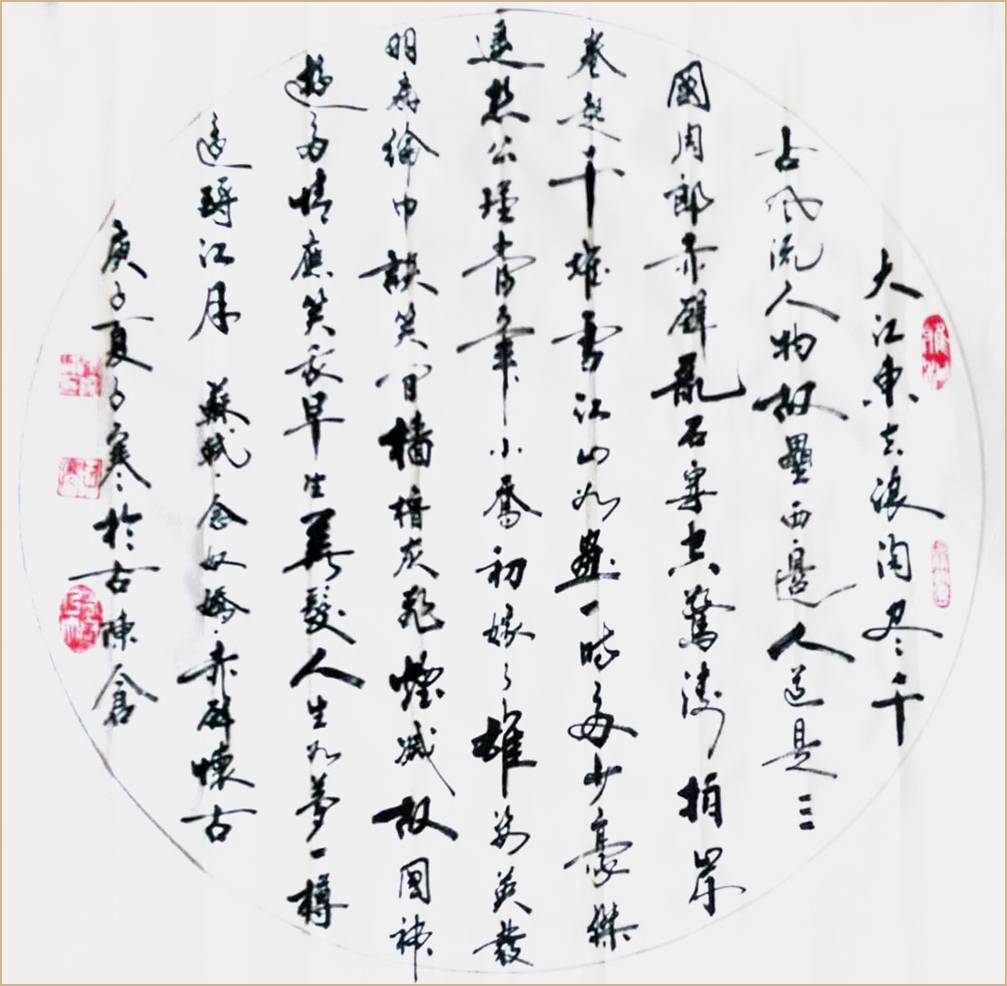 大江東去浪淘尽千
古風流人物故壘西邊人道是三
國周郎赤壁亂石穿空驚濤拍岸
卷起千堆雪江山如畫一時多少豪傑
遙想公瑾當年小喬初嫁了雄姿英發
羽扇綸巾談笑間檣櫓灰飛煙滅故國神
遊多情應笑我早生華髮人生如夢一樽
還酹江月 蘇軾念奴嬌赤壁懷古
庚子夏子寒於古陳倉